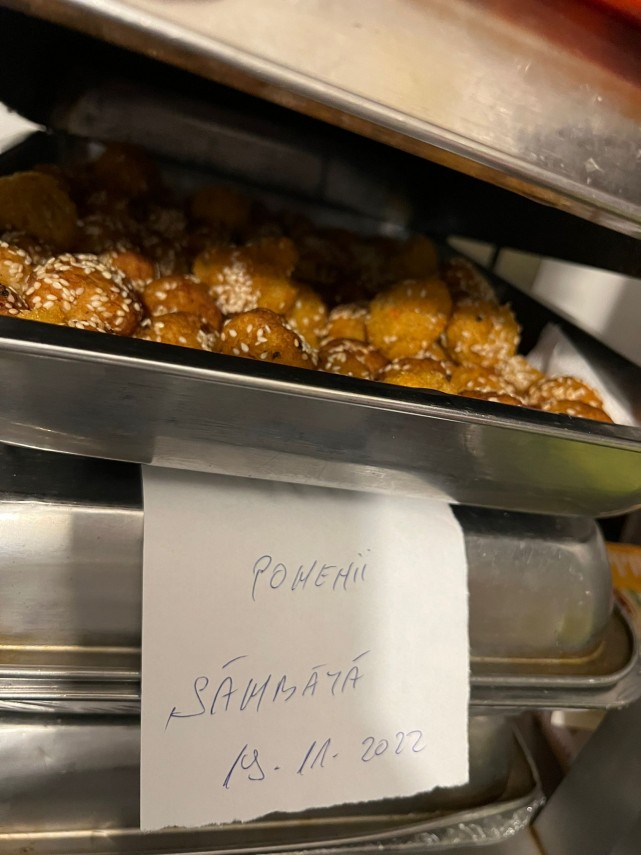 POMENII
SÂMBĂTĂ
19.11.2022